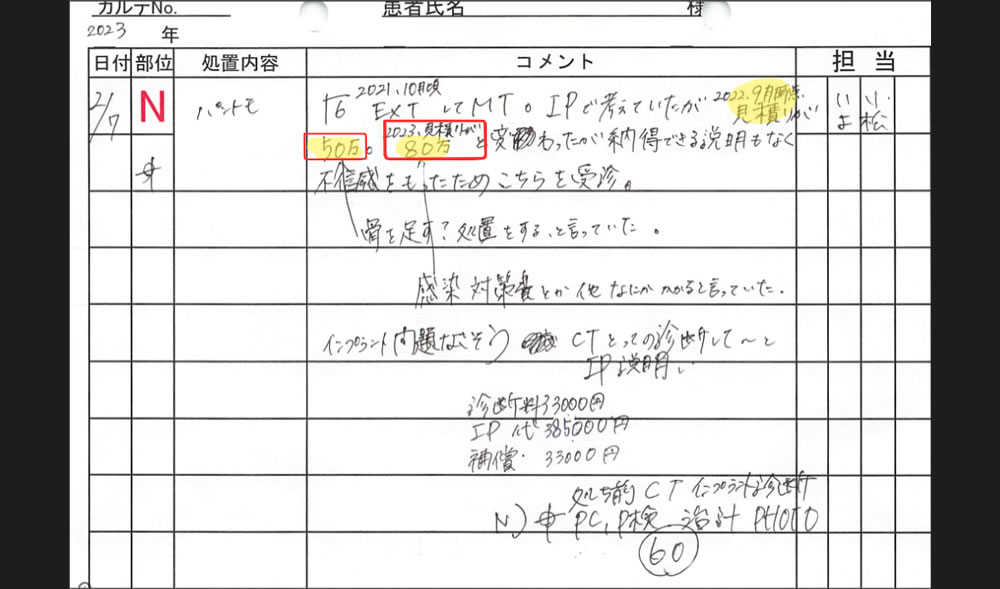 カルテNo. 患者氏名 様
2023 年
日付 部位 処置内容 コメント 担当
2/7 N パントモ
2021.10月頃
2022.9月時点
6 EXT してMT。IPで考えていたが 見積りが
2023.見積りが
50万。80万 と変わったが納得できる説明もなく
不信感をもったためこちらを受診。
骨を足す?処置をすると言っていた。
感染対策費とか他なにかかかると言っていた。
インプラント問題なさそう CTとっての診断して〜と
IP説明
診断料33000円
IP代 385000円
補償 33000円
処置前 CT インプラント診断
N) PC, P検 設計 PHOTO
60
い 小
よ 松